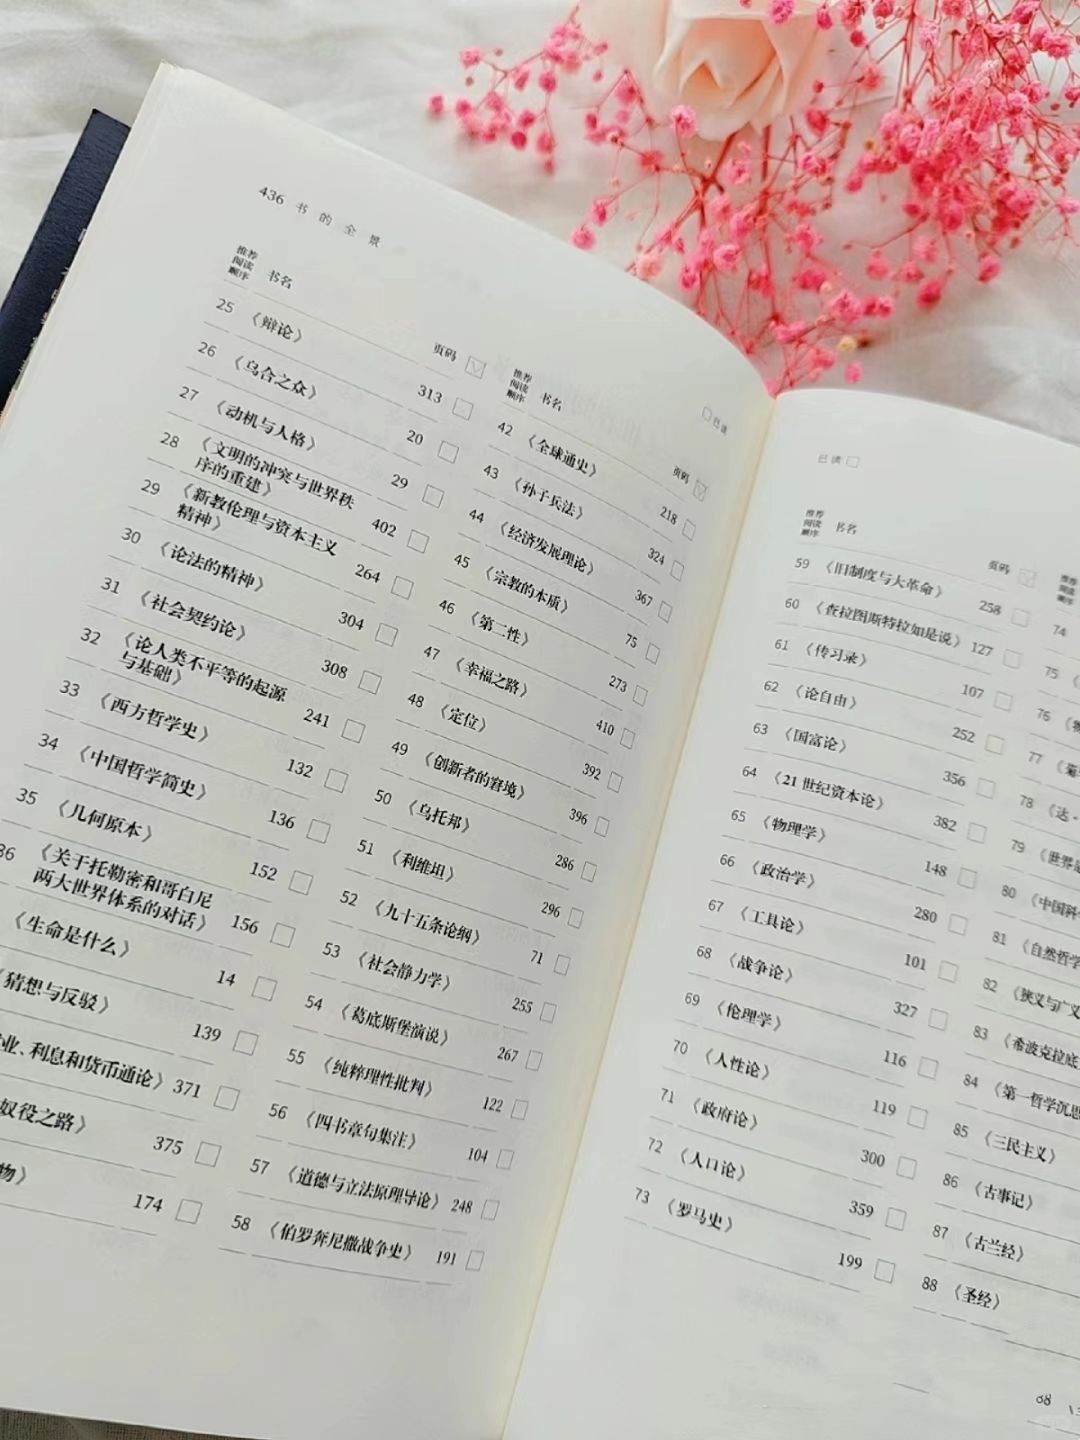 436 书的全景
推荐
阅读
顺序
书名
页码
25 《辩论》 313
26 《乌合之众》 20
27 《动机与人格》 29
28 《文明的冲突与世界秩
序的重建》 402
29 《新教伦理与资本主义
精神》 264
30 《论法的精神》 304
31 《社会契约论》 308
32 《论人类不平等的起源
与基础》 241
33 《西方哲学史》 132
34 《中国哲学简史》 136
35 《几何原本》 152
36 《关于托勒密和哥白尼
两大世界体系的对话》 156
《生命是什么》 14
猜想与反驳》 139
业、利息和货币通论》 371
奴役之路》 375
物》 174
推荐
阅读
顺序
书名
页码
42 《全球通史》 218
43 《孙子兵法》 324
44 《经济发展理论》 367
45 《宗教的本质》 75
46 《第二性》 273
47 《幸福之路》 410
48 《定位》 392
49 《创新者的窘境》 396
50 《乌托邦》 286
51 《利维坦》 296
52 《九十五条论纲》 71
53 《社会静力学》 255
54 《葛底斯堡演说》 267
55 《纯粹理性批判》 122
56 《四书章句集注》 104
57 《道德与立法原理导论》 248
58 《伯罗奔尼撒战争史》 191
已读
推荐
阅读
顺序
书名
页码
59 《旧制度与大革命》 258
60 《查拉图斯特拉如是说》 127
61 《传习录》 107
62 《论自由》 252
63 《国富论》 356
64 《21世纪资本论》 382
65 《物理学》 148
66 《政治学》 280
67 《工具论》 101
68 《战争论》 327
69 《伦理学》 116
70 《人性论》 119
71 《政府论》 300
72 《人口论》 359
73 《罗马史》 199
推荐
阅读
顺序
74
75
76
77
78 《达·
79 《世界
80 《中国科
81 《自然哲学
82 《狭义与广义
83 《希波克拉底
84 《第一哲学沉思
85 《三民主义》
86 《古事记》
87 《古兰经》
88 《圣经》